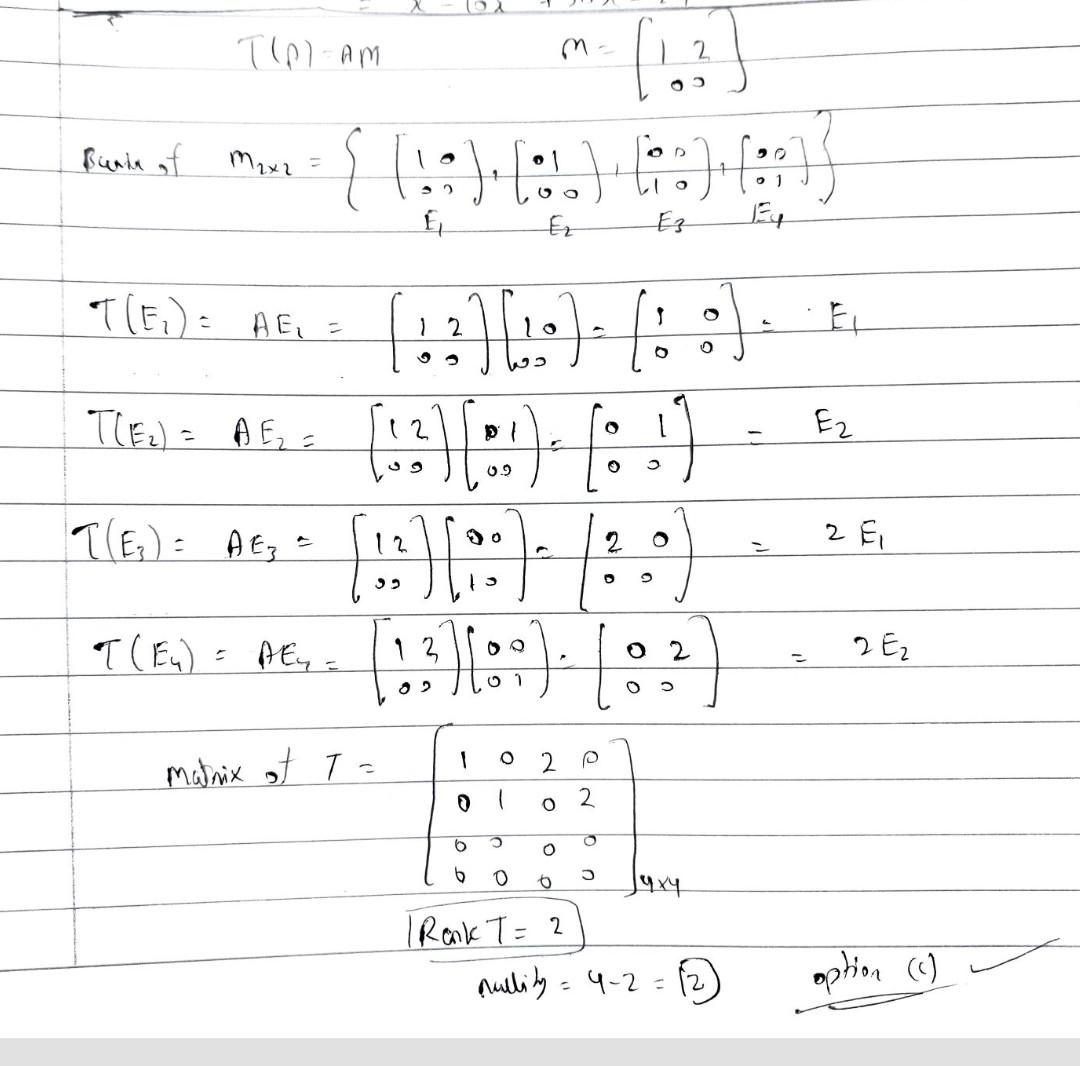 T(P) = AM m = [1 2 0 0]
of M2x2 = { [1 0 0 0], [0 1 0 0], [0 0 1 0], [0 0 0 1] }
E1 E2 E3 E4
T(E1) = AE1 = [1 2 0 0] [1 0 0 0] = [1 0 0 0] = E1
T(E2) = AE2 = [1 2 0 0] [0 1 0 0] = [0 1 0 0] = E2
T(E3) = AE3 = [1 2 0 0] [0 0 1 0] = [2 0 0 0] = 2 E1
T(E4) = AE4 = [1 2 0 0] [0 0 0 1] = [0 2 0 0] = 2 E2
matrix of T =
1 0 2 0
0 1 0 2
0 0 0 0
0 0 0 0 4x4
Rank T = 2
nullity = 4-2 = 2 option (c) ✓